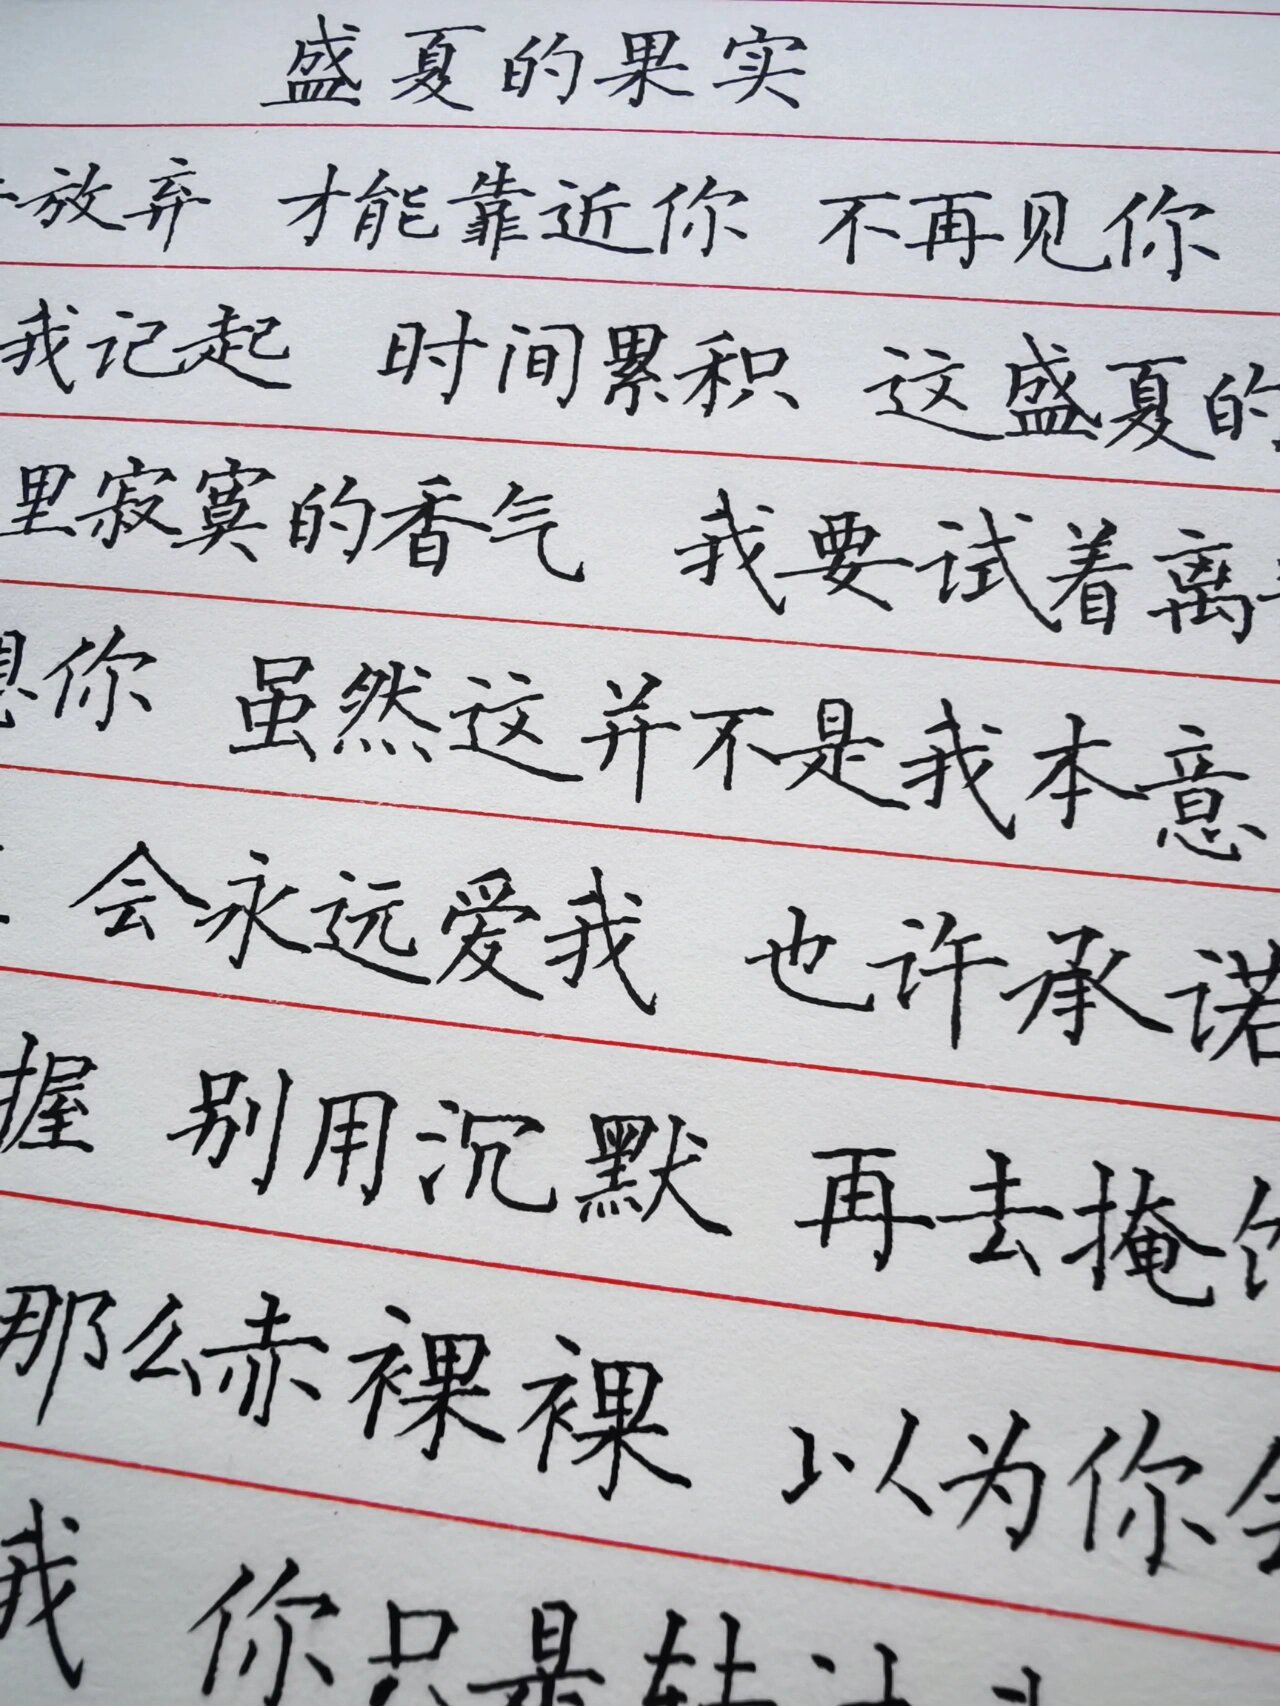 盛夏的果实
放弃 才能靠近你 不再见你
我记起 时间累积 这盛夏的
里寂寞的香气 我要试着离
想你 虽然这并不是我本意
会永远爱我 也许承诺
握 别用沉默 再去掩饰
那么赤裸裸 以为你会
我 你只是转过